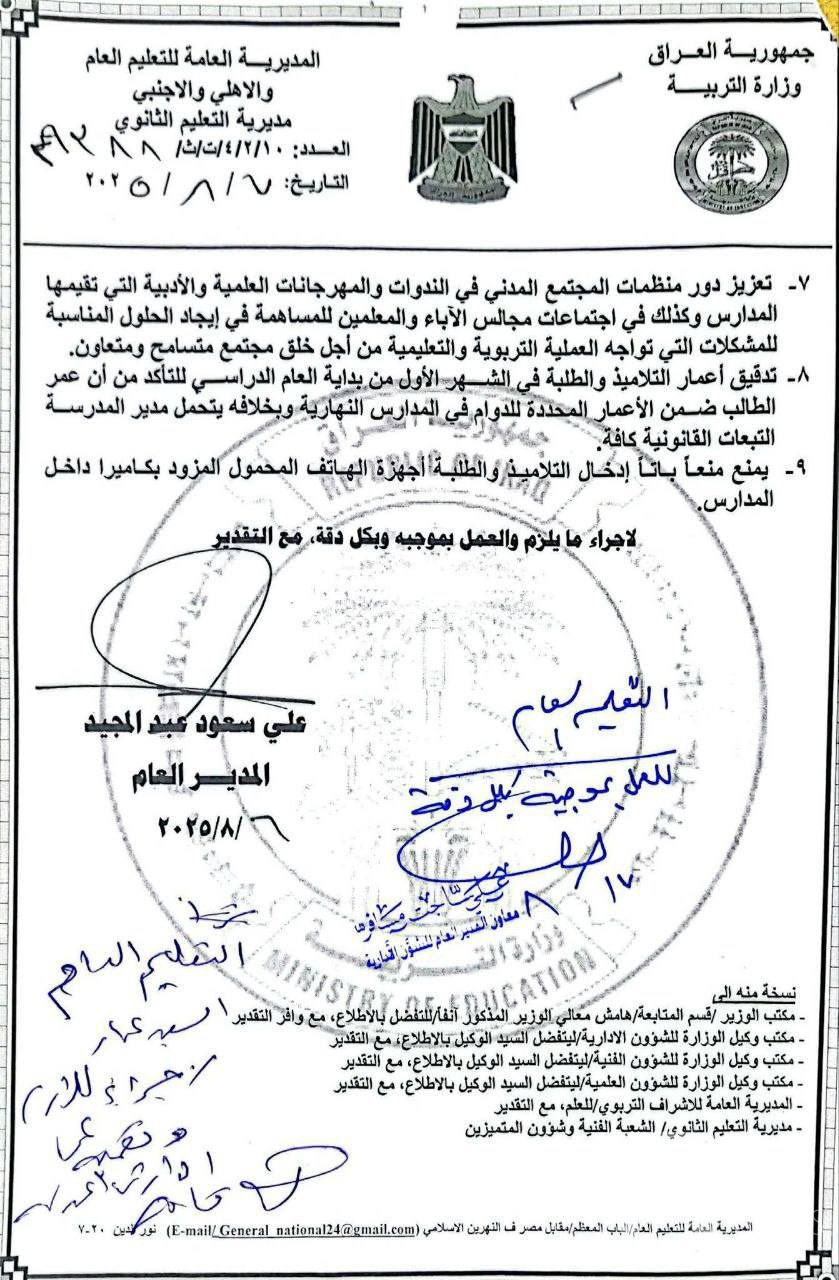 جمهوريـة العـراق
وزارة التربيـة
المديريـة العامة للتعليم العام
والاهلي والاجنبي
مديرية التعليم الثانوي
العـدد: ٤/٢/١٠/ت/ث/
التاريخ: ٧ / ٨ / ٢٠٢٥
٧- تعزيز دور منظمات المجتمع المدني في الندوات والمهرجانات العلمية والأدبية التي تقيمها
المدارس وكذلك في اجتماعات مجالس الآباء والمعلمين للمساهمة في إيجاد الحلول المناسبة
للمشكلات التي تواجه العملية التربوية والتعليمية من أجل خلق مجتمع متسامح ومتعاون.
٨- تدقيق أعمار التلاميذ والطلبة في الشـهر الأول من بداية العام الدراسـي للتأكد من أن عمر
الطالب ضـمن الأعمار المحددة للدوام في المدارس النهارية وبخلافه يتحمل مدير المدرسـة
التبعات القانونية كافة.
٩- يمنع منعـاً بـاتاً إدخـال التلاميـذ والطلبة أجهزة الهاتف المحمول المزود بكاميرا داخل
المدارس.
لاجراء ما يلزم والعمل بموجبه وبكل دقة، مع التقدير
علي سعود عبد المجيد
المديـر العام
٢٠٢٥/٨/٦
التعليم العام
للعمل بموجبه بكل دقة
٨ / ١٧
معاون المدير العام للشؤون الادارية
جمهوريـة العـراق
REPUBLIC OF IRAQ
وزارة التربيـة
MINISTRY OF EDUCATION
التعليم العام
نسخة منه الى
- مكتب الوزير /قسم المتابعة/هامش معالي الوزير المذكور آنفاً/للتفضل بالاطلاع، مع وافر التقدير
- مكتب وكيل الوزارة للشؤون الادارية/ليتفضل السيد الوكيل بالاطلاع، مع التقدير
- مكتب وكيل الوزارة للشؤون الفنية/ليتفضل السيد الوكيل بالاطلاع، مع التقدير
- مكتب وكيل الوزارة للشؤون العلمية/ليتفضل السيد الوكيل بالاطلاع، مع التقدير
- المديرية العامة للاشراف التربوي/للعلم، مع التقدير
- مديرية التعليم الثانوي/ الشعبة الفنية وشؤون المتميزين
المديرية العامة للتعليم العام/الباب المعظم/مقابل مصرف النهرين الاسلامي (E-mail/ General_national24@gmail.com) نور الدين ٢٠-٧